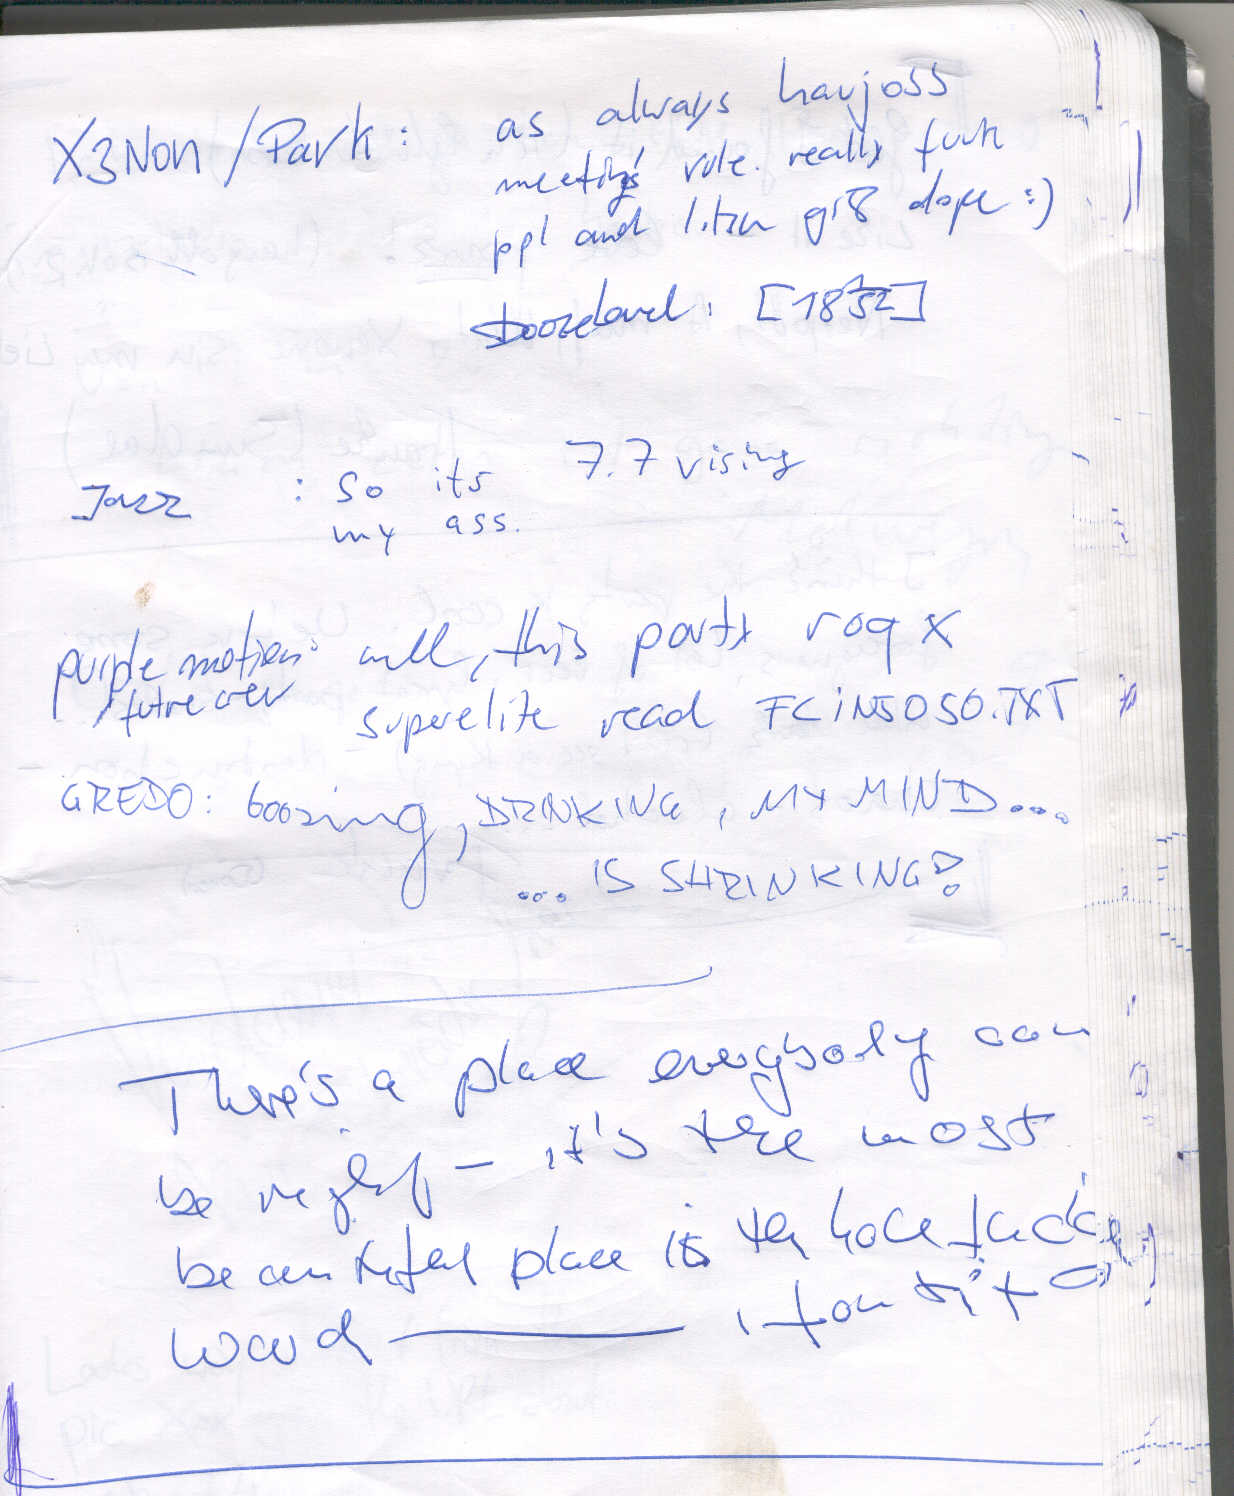 X3NON/PARK: as always havjoss
meetings rule. really funk
ppl and litsa gr8 dope :)
Boozelevel: [18
Jazz : so its 7.7 vising
my ass.
purple motion: well, this party roq x
/future crew superelite read FCINFO50.TXT
GREDO: boozing, DRINKING, MY MIND...
... IS SHRINKING!
There's a place everybody can
be – it's the most
beautiful place in the hole
word —